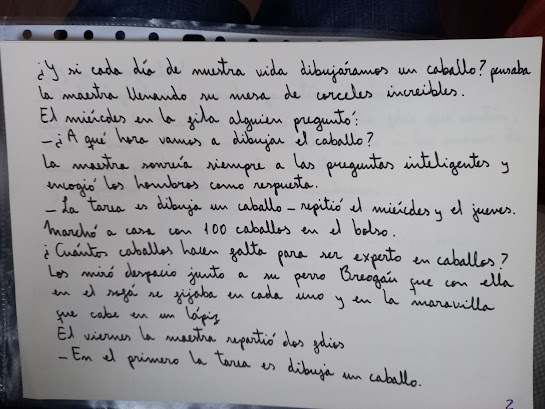 ¿Y si cada día de nuestra vida dibujáramos un caballo? pensaba
la maestra llenando su mesa de corceles increibles.
El miércoles en la fila alguien preguntó:
-¿A qué hora vamos a dibujar el caballo?
La maestra sonreía siempre a las preguntas inteligentes y
encogió los hombros como respuesta.
- La tarea es dibuja un caballo - repitió el miércoles y el jueves.
Marchó a casa con 100 caballos en el bolso.
¿Cuántos caballos hacen falta para ser experto en caballos?
Los miró despacio junto a su perro Breogán que con ella
en el sofá se fijaba en cada uno y en la maravilla
que cabe en un lápiz
El viernes la maestra repartió dos folios
- En el primero la tarea es dibuja un caballo.
2